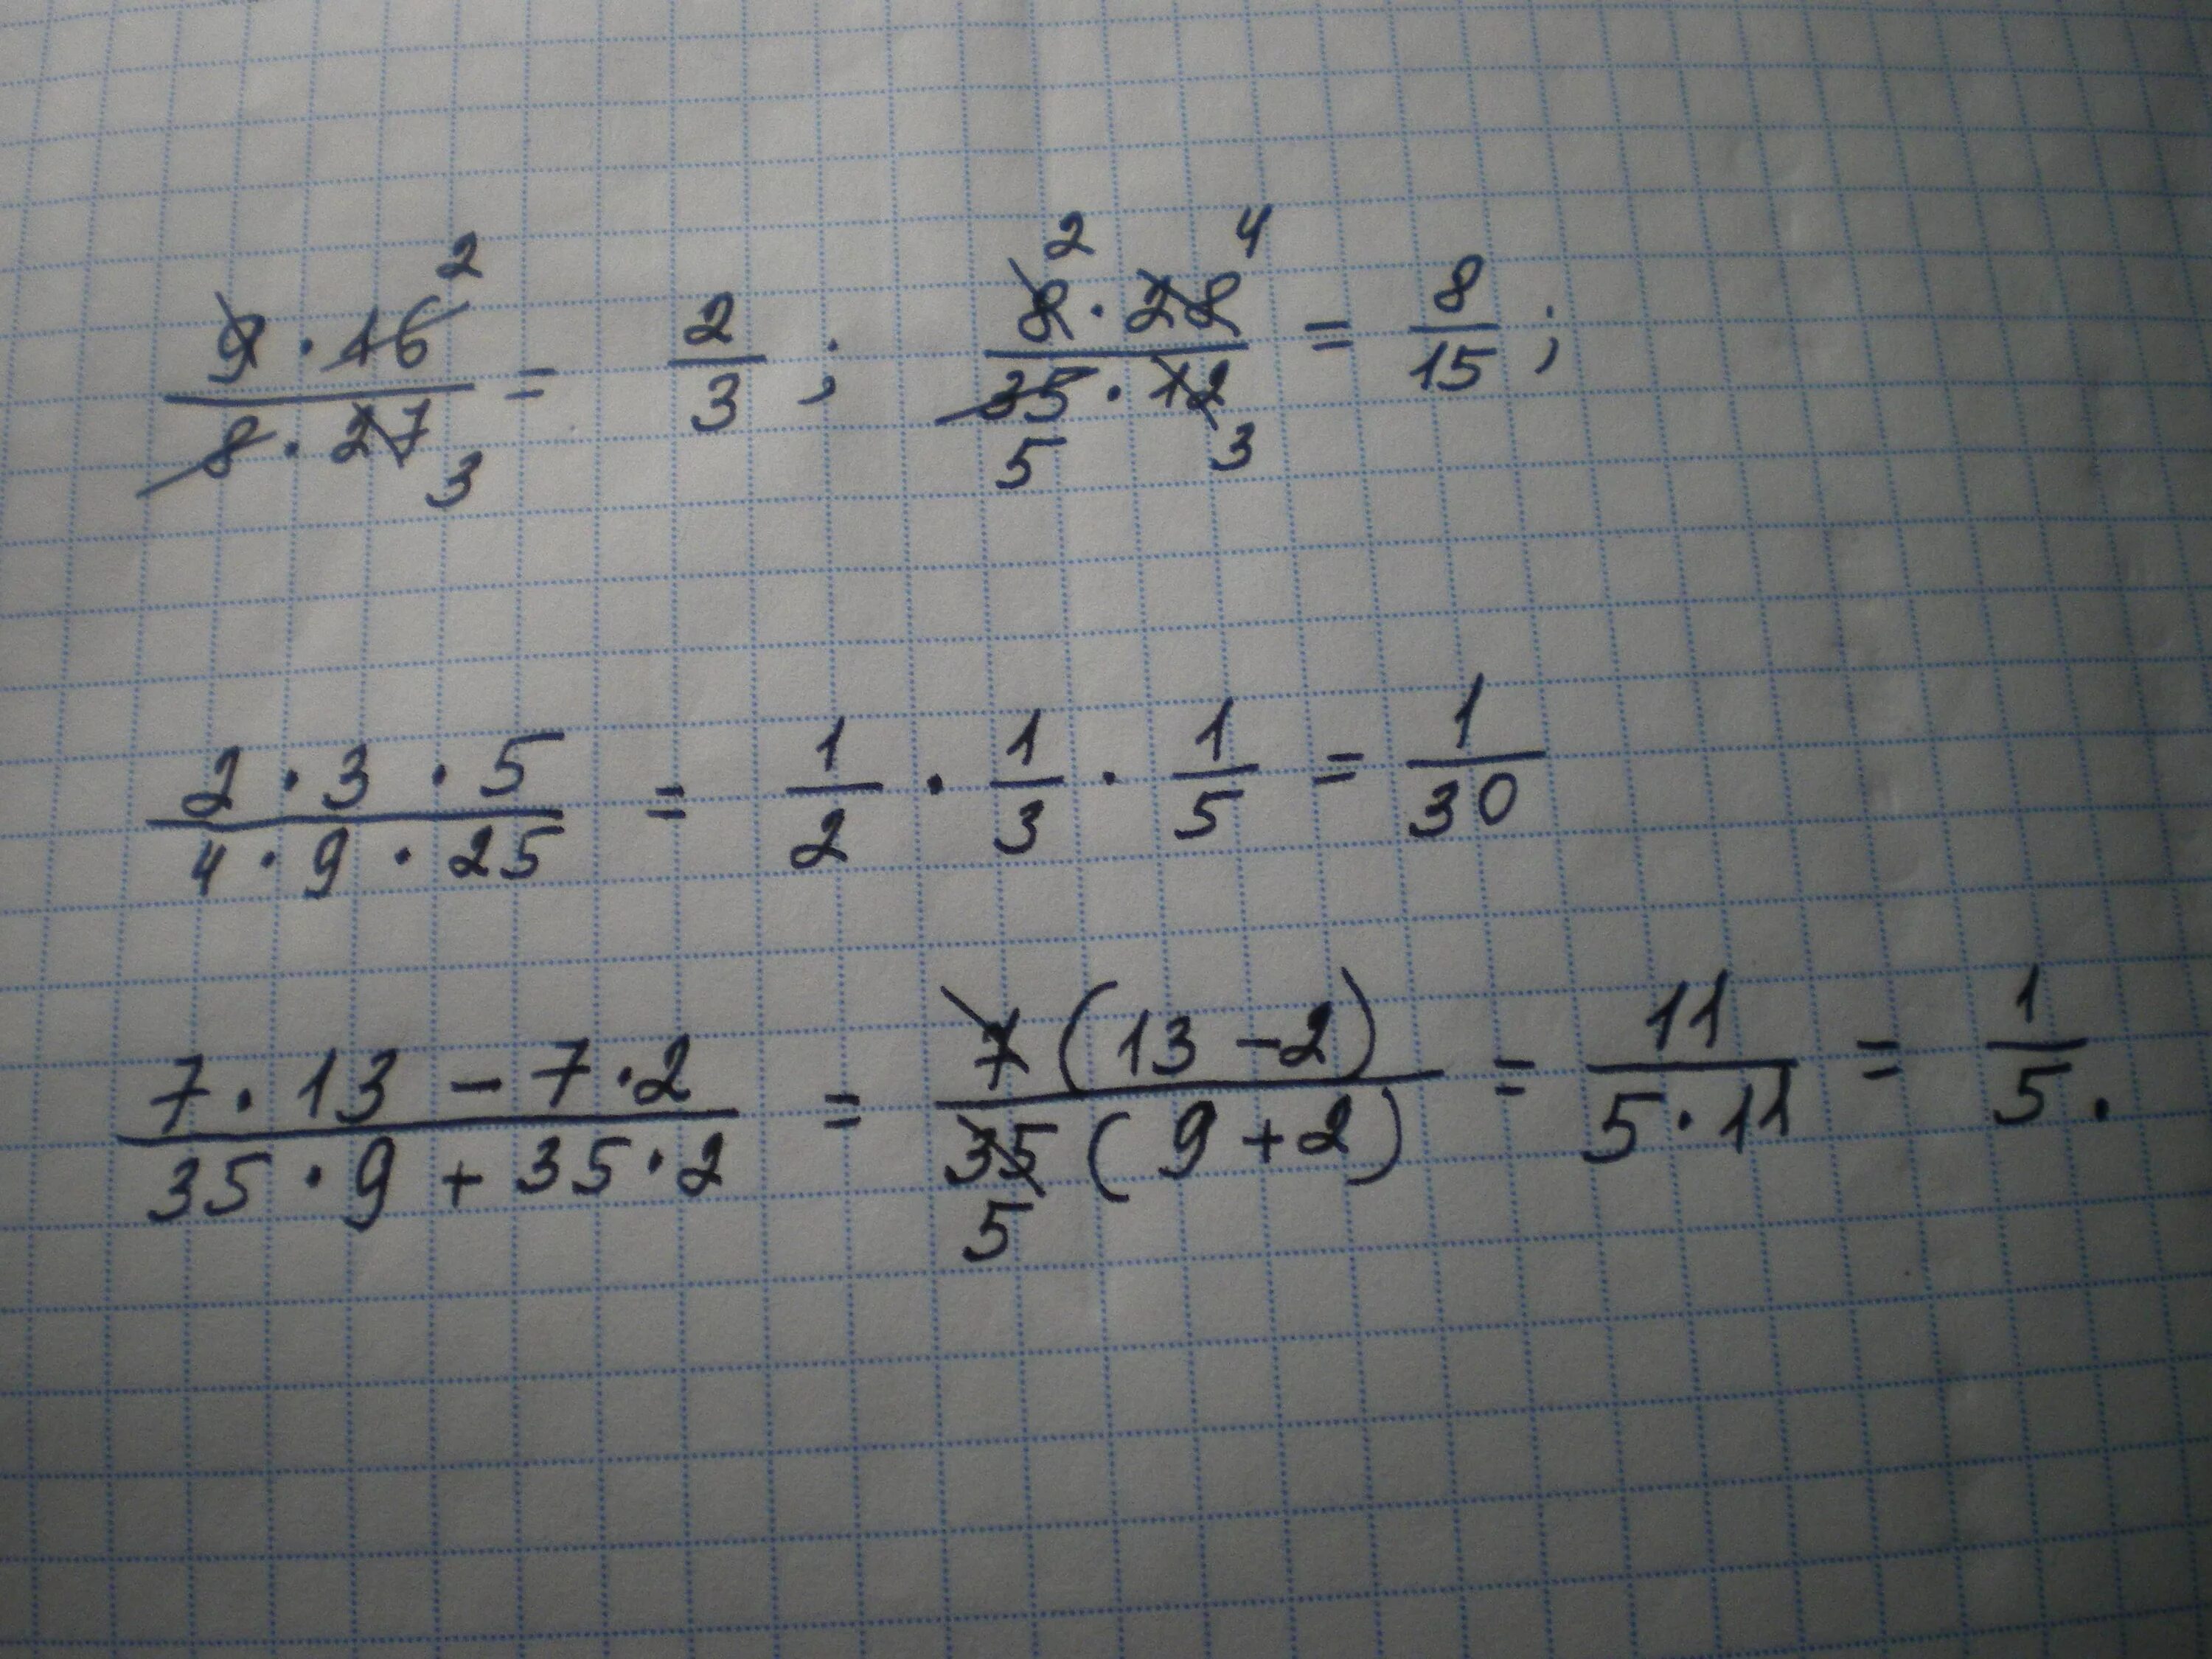 9 · 16 2 / 8 · 27 3 = 2/3 ; 8 2 · 28 4 / 35 5 · 12 3 = 8/15 ;
2 · 3 · 5 / 4 · 9 · 25 = 1/2 · 1/3 · 1/5 = 1/30
7 · 13 - 7 · 2 / 35 · 9 + 35 · 2 = 7 (13 - 2) / 35 5 (9 + 2) = 11 / 5 · 11 = 1/5 .